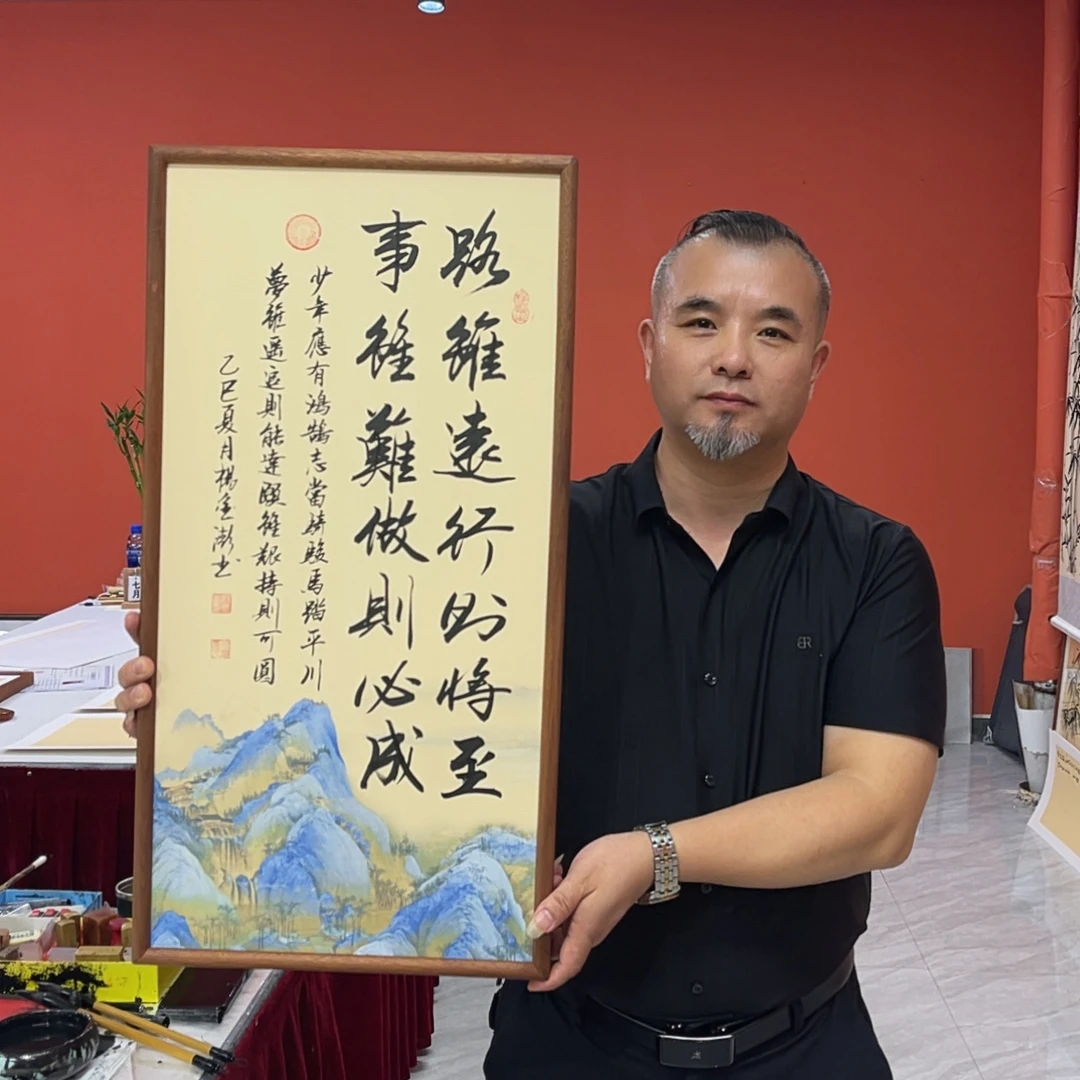 路雖遠行則將至
事雖難做則必成
少年應有鴻鵠志當騎駿馬踏平川
夢雖遥追則能達願雖艱持則可圓
乙巳夏月楊金澍書
七月